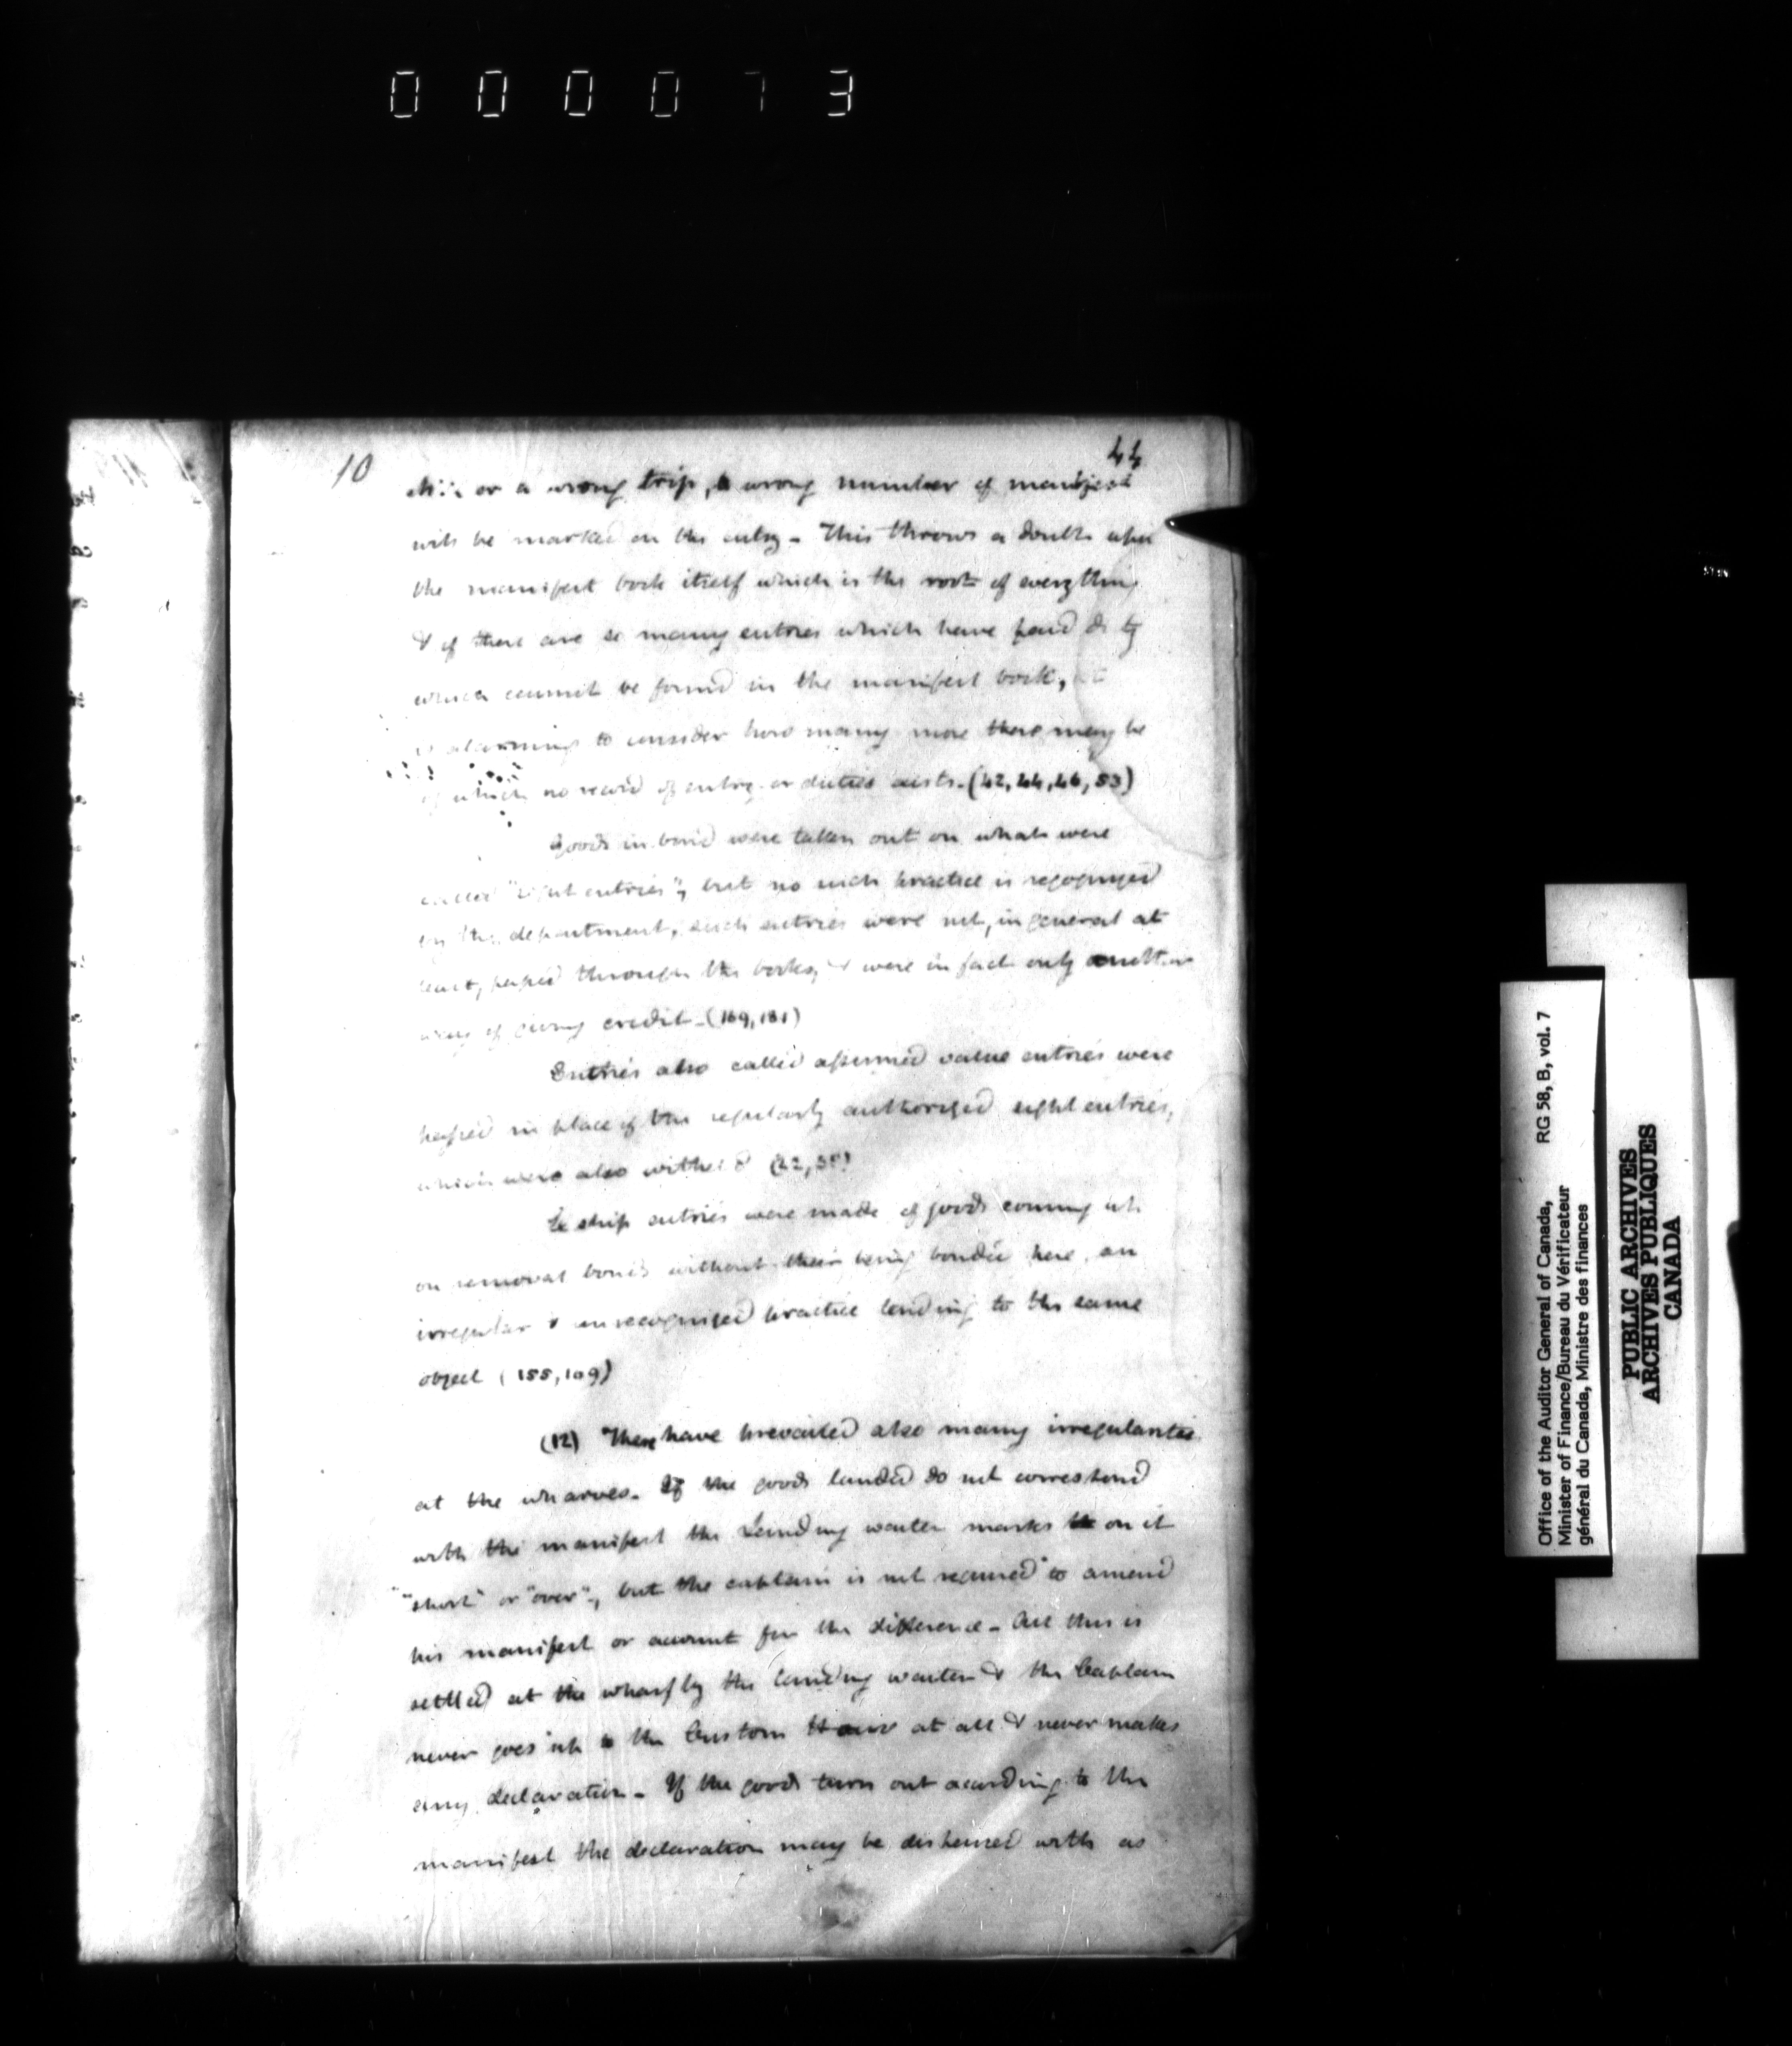 000073
10
44
or a wrong trip, a wrong number of manifest
will be marked on the entry - This throws a doubt upon
the manifest book itself which is the root of everything
& if there are so many entries which have paid duty
which cannot be found in the manifest book, it
is alarming to consider how many more there may be
of which no record of entry or duties exists. (42, 44, 46, 53)
Goods in bond were taken out on what were
called "sight entries", but no such practice is recognized
by the department, such entries were not, in general at
least, passed through the books, & were in fact only another
way of giving credit - (169, 181)
Entries also called assumed value entries were
passed in place of the regularly authorized sight entries,
which were also
Ex ship entries were made of goods coming up
on removal bonds without their being bonded here, an
irregular & unrecognized practice tending to the same
object (155, 109)
(12) There have prevailed also many irregularities
at the wharves. If the goods landed do not correspond
with the manifest the Landing waiter marks on it
"short" or "over", but the captain is not required to amend
his manifest or account for the difference - All this is
settled at the wharf by the landing waiter & the Captain
never goes up to the Custom House at all & never makes
any declaration - If the goods turn out according to the
manifest the declaration may be dispensed with as
Office of the Auditor General of Canada, RG 58, B, vol. 7
Minister of Finance/Bureau du Vérificateur
général du Canada, Ministre des finances
PUBLIC ARCHIVES
ARCHIVES PUBLIQUES
CANADA